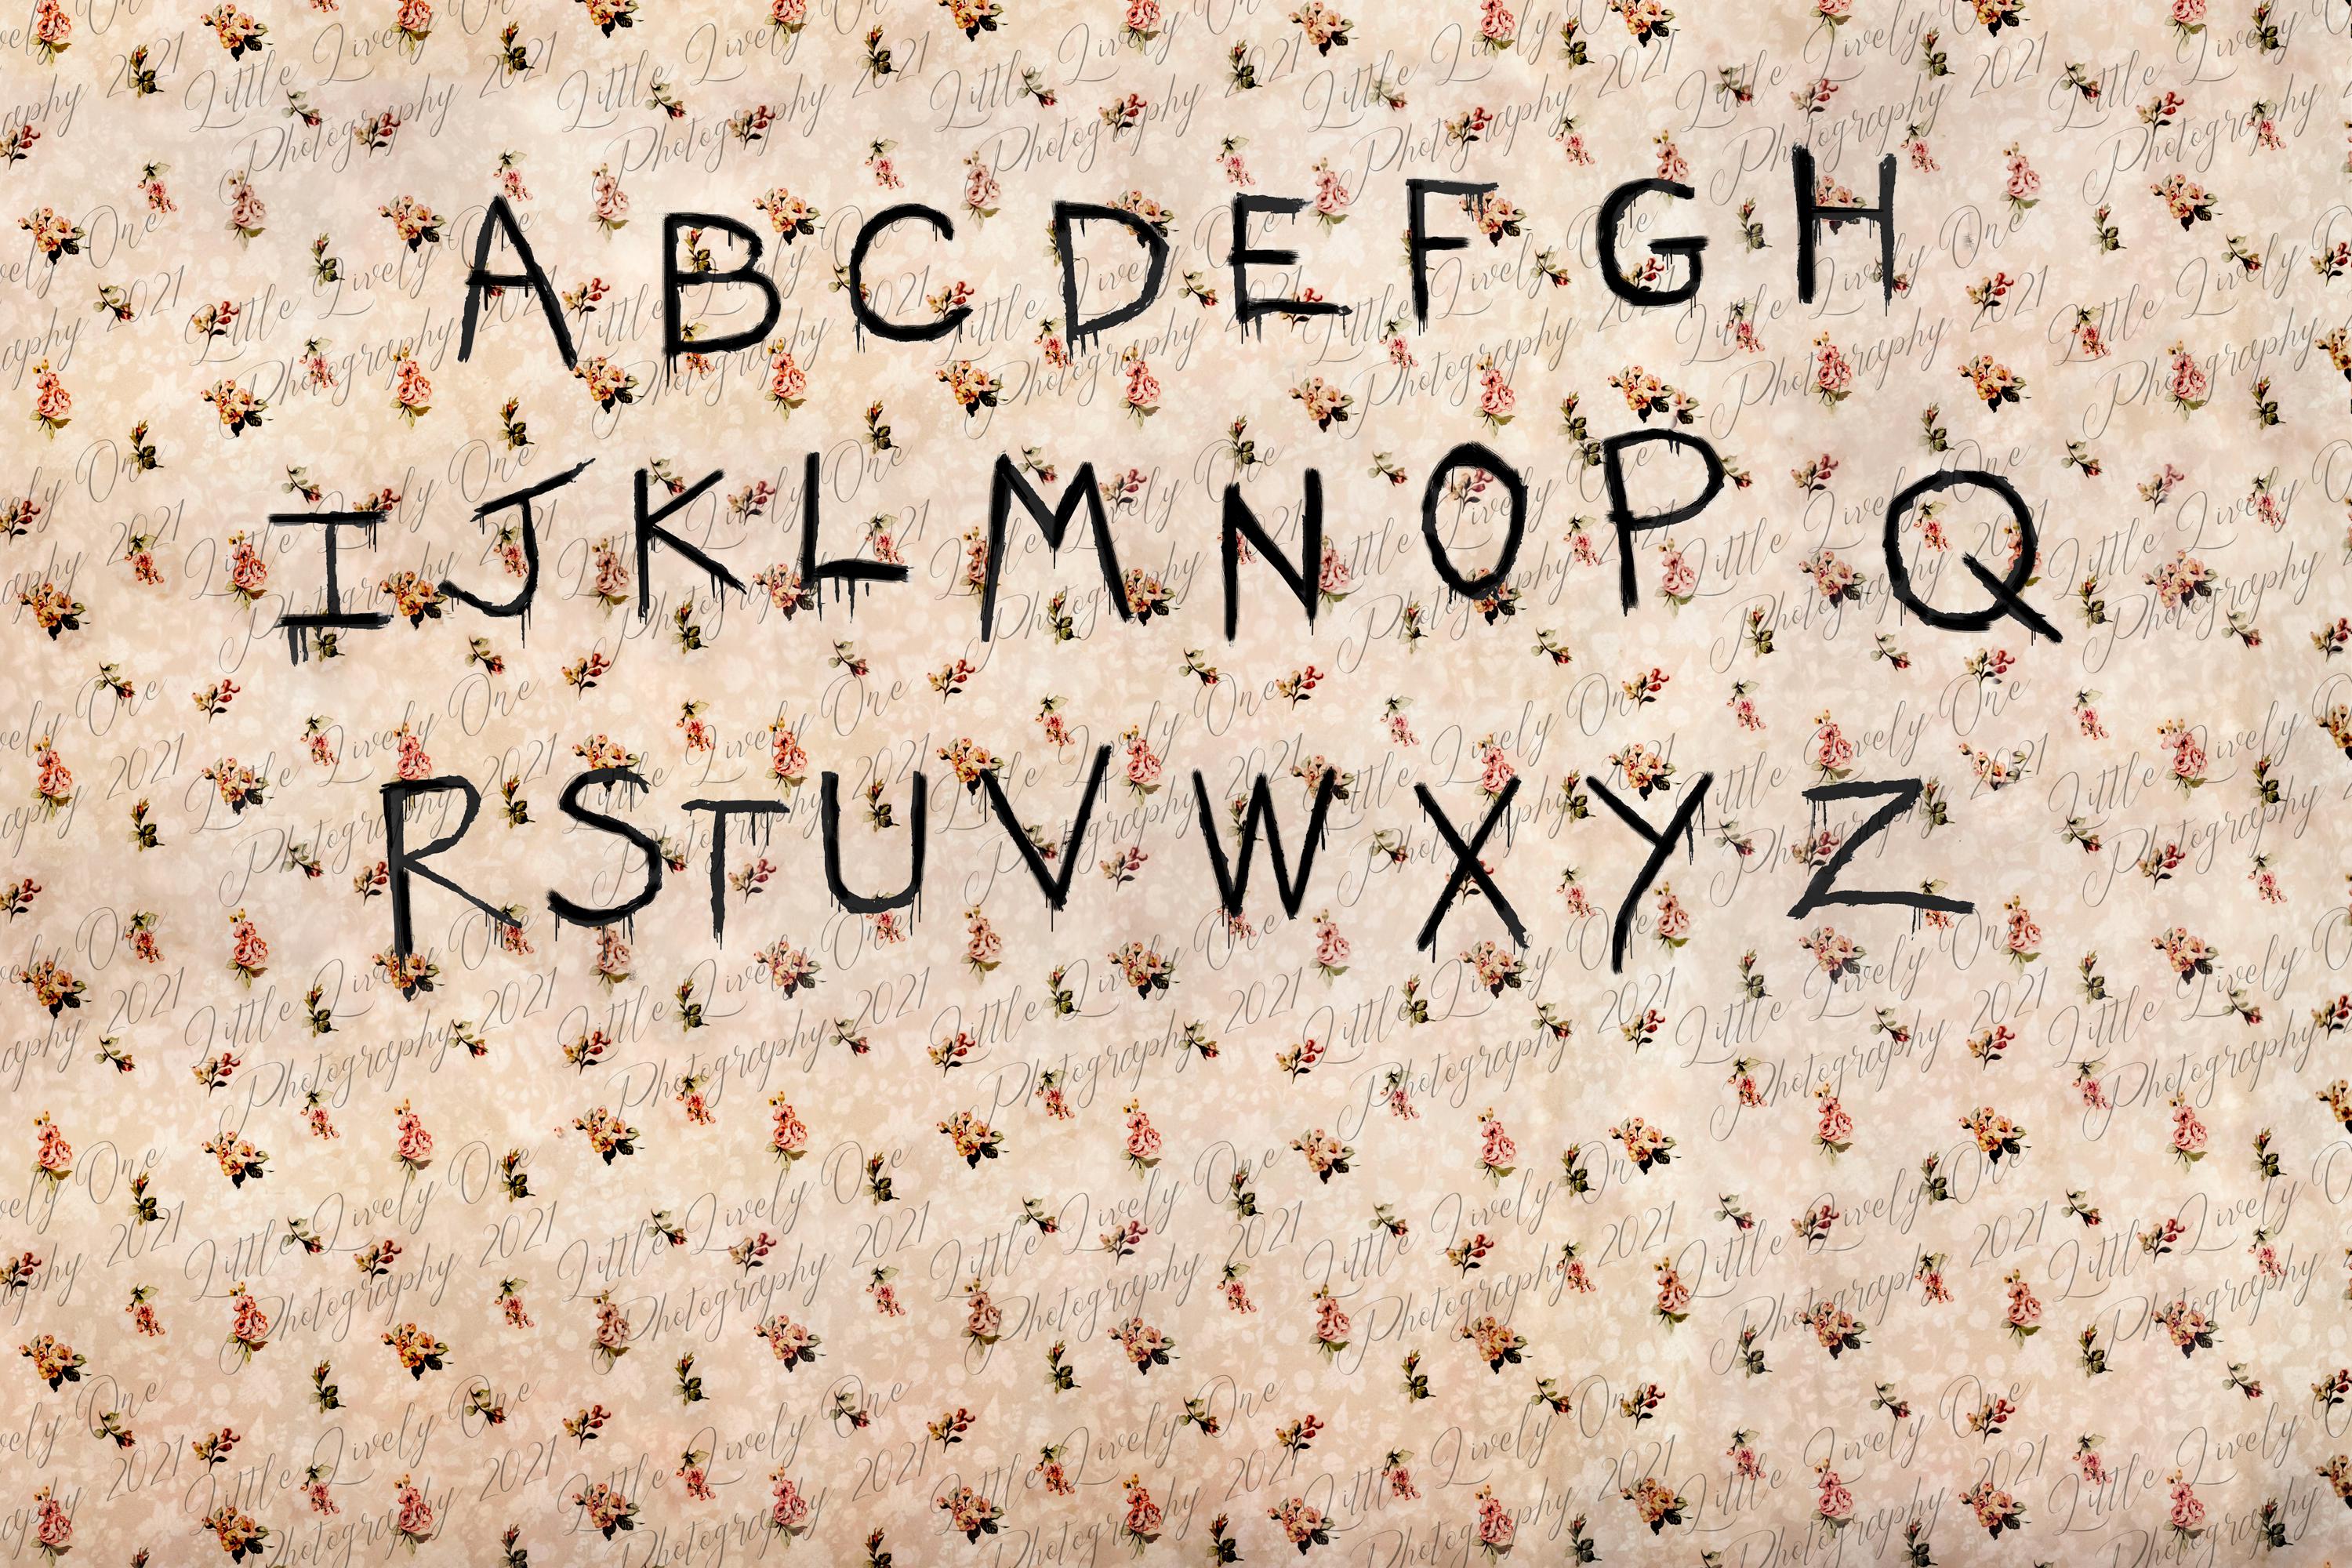 A B C D E F G H
I J K L M N O P Q
R S T U V W X Y Z
Little Lively One
Photography 2021